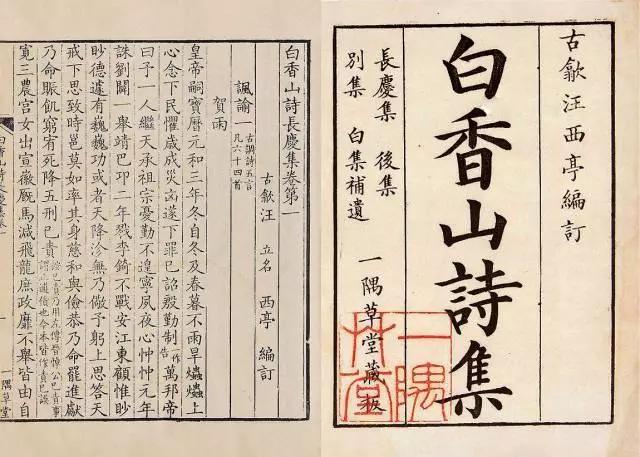 古歙汪西亭編訂
白香山詩集
長慶集 後集
別集 白集補遺
一隅草堂藏板
一隅草堂
白香山詩長慶集卷第一
古歙汪 立名 西亭 編訂
諷諭一 古調詩五言 凡六十四首
賀雨
皇帝嗣寶曆元和三年冬自冬及春暮不雨旱爞爞上
心念下民懼歲成災凶遂下罪巳詔殷勤制作告萬邦帝
曰予一人繼天承祖宗憂勤不遑寧夙夜心忡忡元年
誅劉闢一舉靖巴邛二年戮李錡不戰安江東顧惟眇
眇德遽有巍巍功或者天降沴無乃儆予躬上思答天
戒下思致時邕莫如率其身慈和與儉恭乃命罷進獻
乃命賑飢窮宥死降五刑巳責 責乃用左傳晉悼公巳責事 逋債也今本皆作責巳誤
寬三農宮女出宣徽厩馬減飛龍庶政靡不舉皆由自
一隅草堂